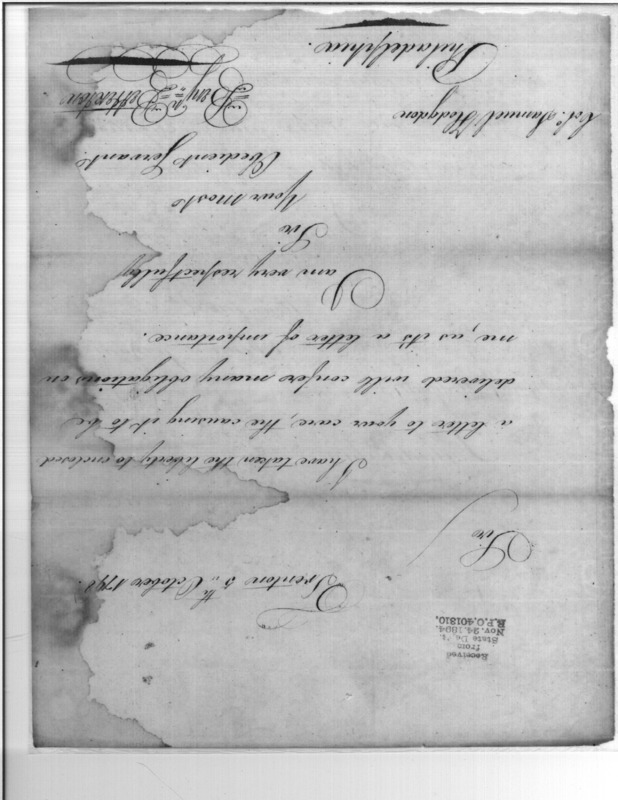 Received
from
State De't.
Nov. 24. 1894.
R.P.O. 401310.
Trenton 5th October 1798.
Sir
I have taken the liberty to enclosed
a letter to your care, the causing it to be
delivered will confer many obligations on
me, as it's a letter of importance.
I
am very respectfully
Sir
Your most
Obedient Servant
Benjn Betterton
Col. Samuel Hodgdon
Philadelphia.